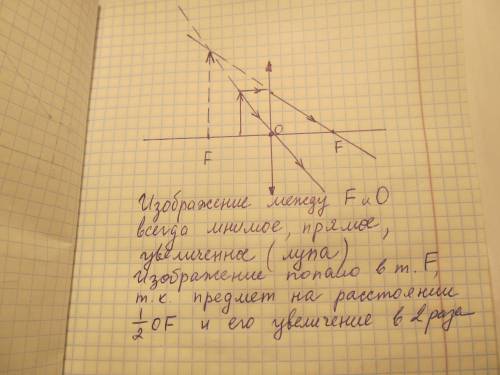 O
F
F
Изображение между F и O
всегда мнимое, прямое,
увеличенное (лупа)
Изображение попало в т. F,
т.к. предмет на расстоянии
1/2 OF и его увеличение в 2 раза